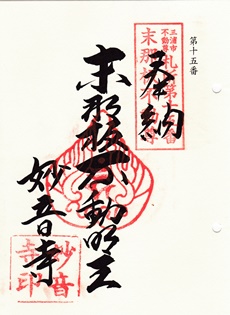 第十五番
奉納
三浦市
不動尊
札所第十五番
末那板不動尊
末那板不動明王
妙音寺
妙音
寺印